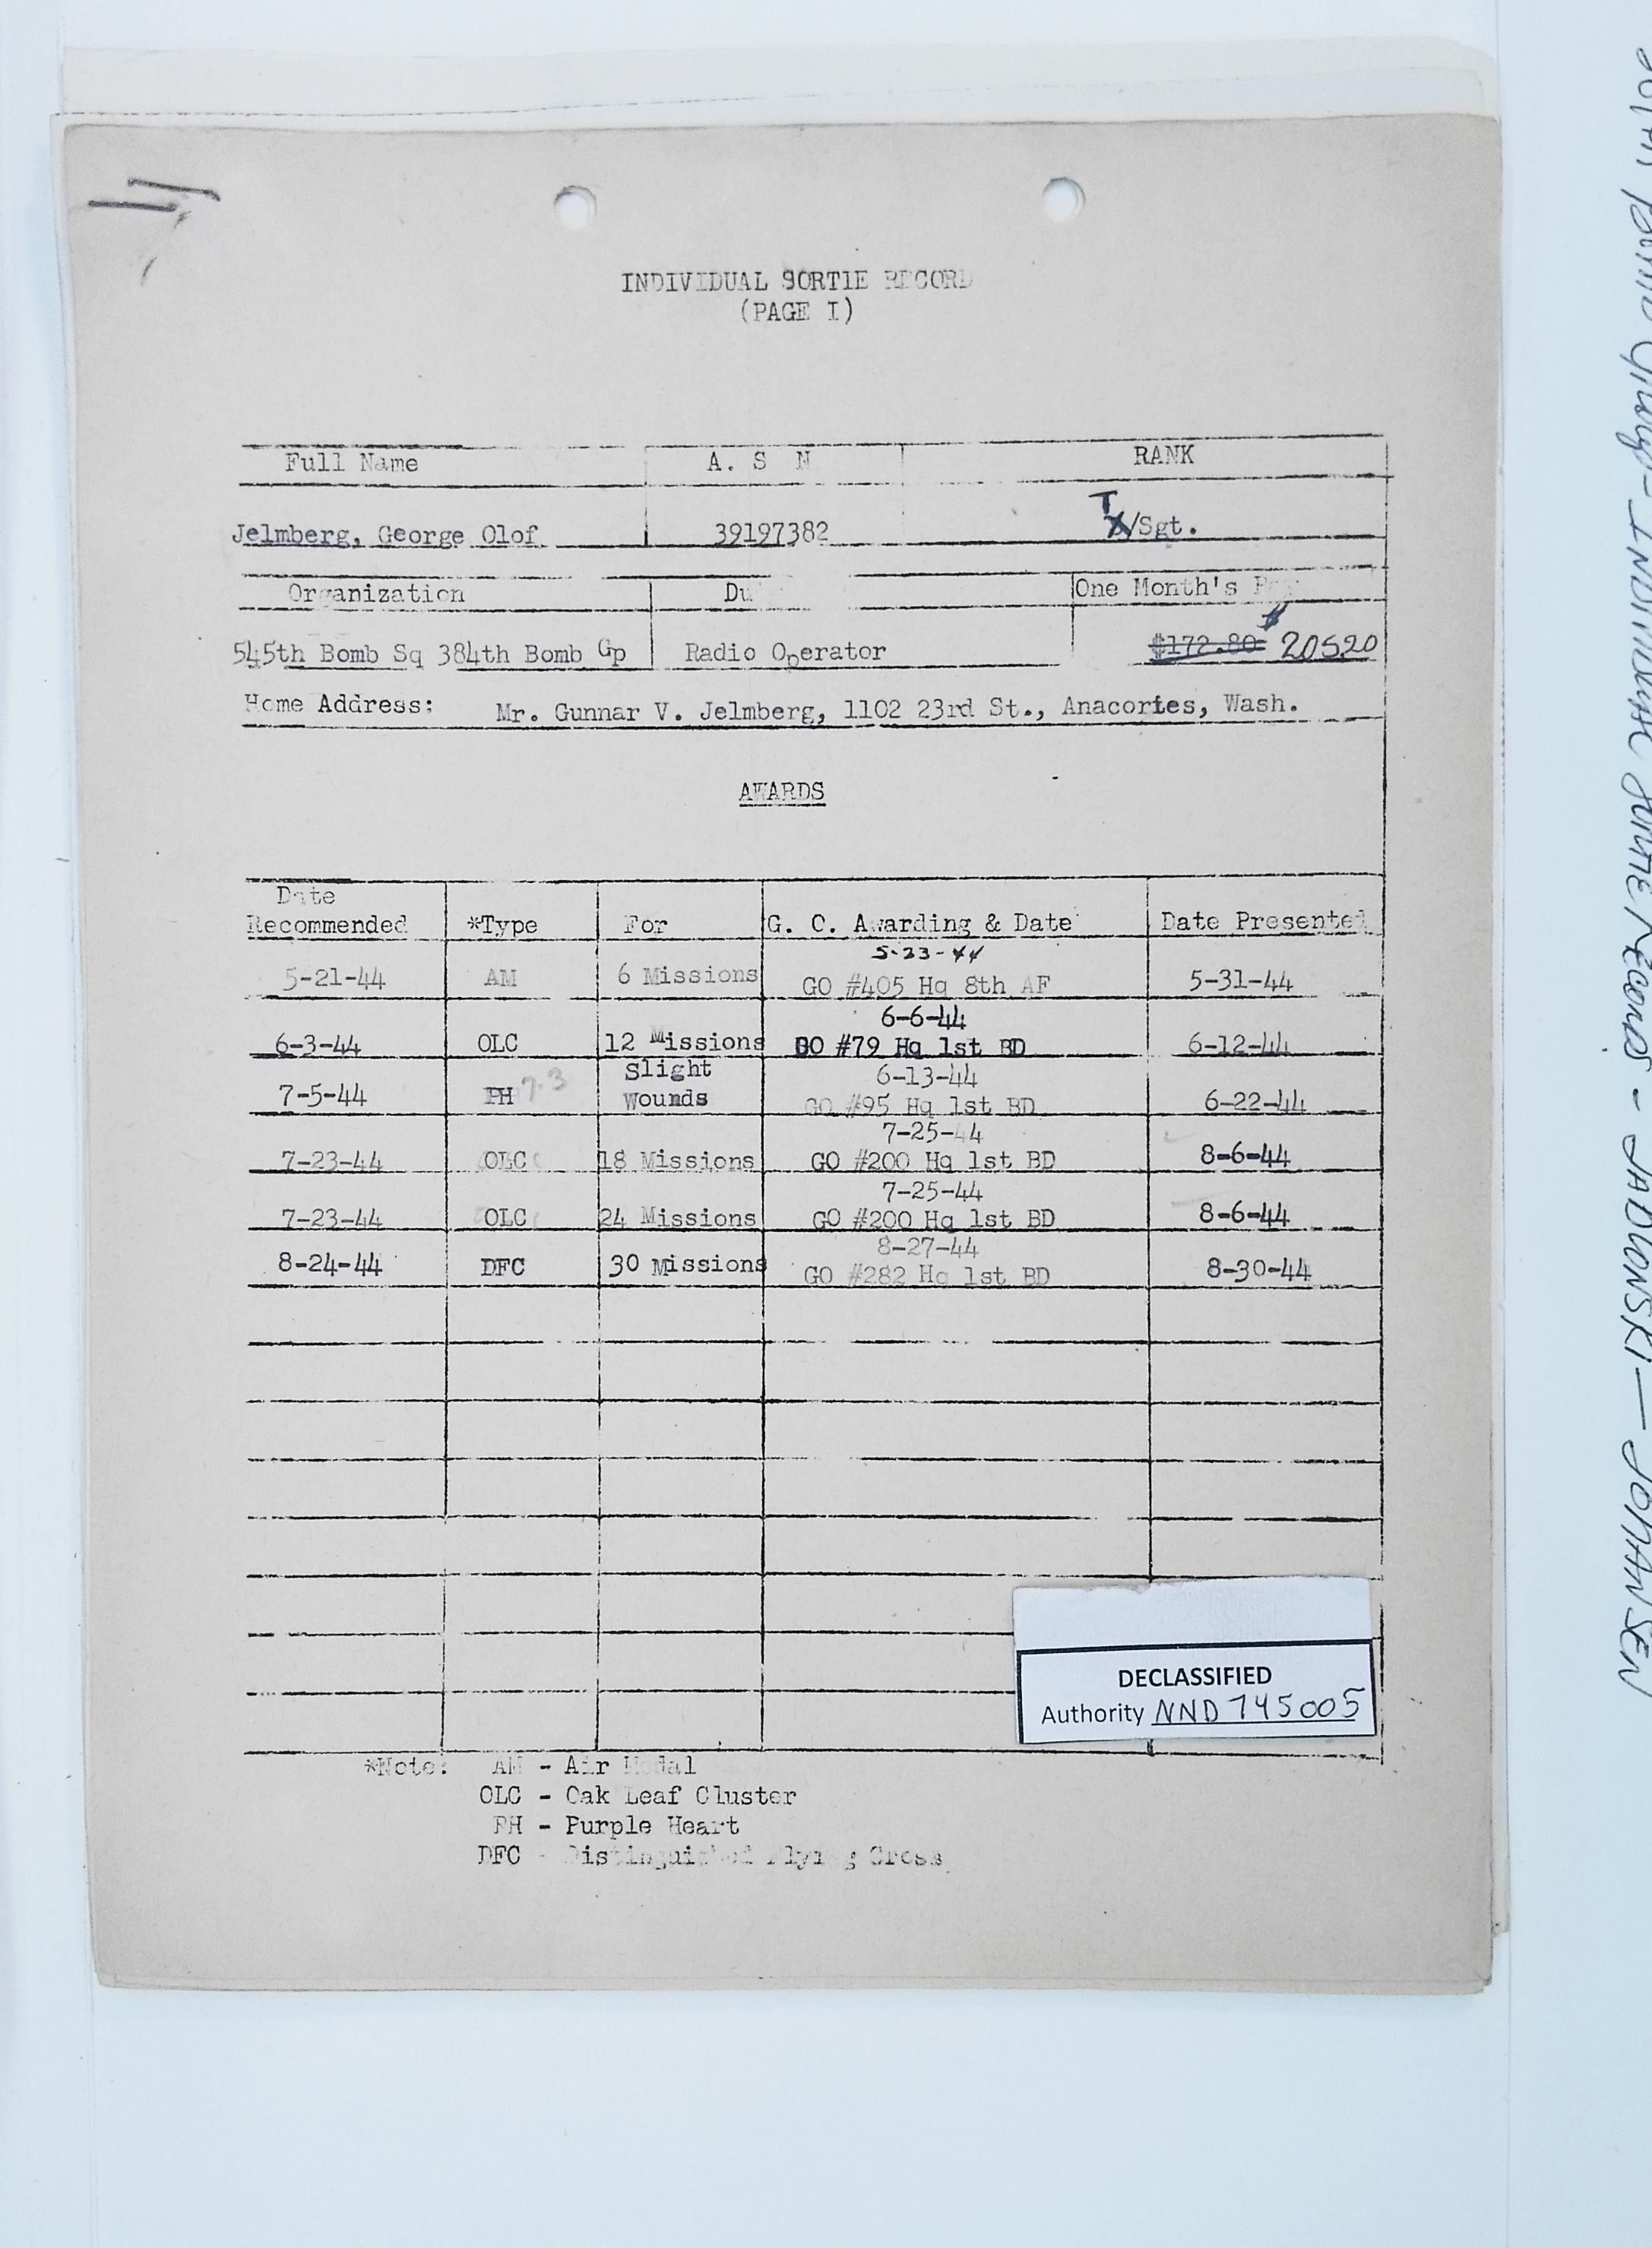 INDIVIDUAL SORTIE RECORD
(PAGE I)
Full Name A. S N RANK
Jelmberg, George Olof 39197382 T/Sgt.
Organization Du One Month's
545th Bomb Sq 384th Bomb Gp Radio Operator $172.80 $ 205.20
Home Address: Mr. Gunnar V. Jelmberg, 1102 23rd St., Anacortes, Wash.
AWARDS
Date
Recommended *Type For G. C. Awarding & Date Date Presented
5-23-44
5-21-44 AM 6 Missions GO #405 Hq 8th AF 5-31-44
6-6-44
6-3-44 OLC 12 Missions GO #79 Hq 1st BD 6-12-44
Slight 6-13-44
7-5-44 PH 7-3 Wounds GO #95 Hq 1st BD 6-22-44
7-25-44
7-23-44 OLC 18 Missions GO #200 Hq 1st BD 8-6-44
7-25-44
7-23-44 OLC 24 Missions GO #200 Hq 1st BD 8-6-44
8-27-44
8-24-44 DFC 30 Missions GO #282 Hq 1st BD 8-30-44
DECLASSIFIED
Authority NND 745005
*Note: AM - Air Medal
OLC - Oak Leaf Cluster
PH - Purple Heart
DFC - Distinguished Flying Cross
Bomb Group - Individual Sortie Records - JADLOWSKI - JOHANSEN